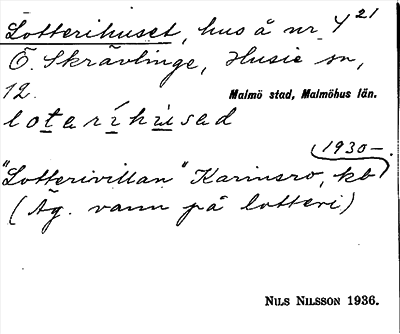 Lotterihuset, hus å nr 4²¹
Ö. Skrävlinge, Husie sn,
12. Malmö stad, Malmöhus län.
lotaríhùsad
1930–.
"Lotterivillan" Karinsro, kb
(Äg. vann på lotteri)
NILS NILSSON 1936.